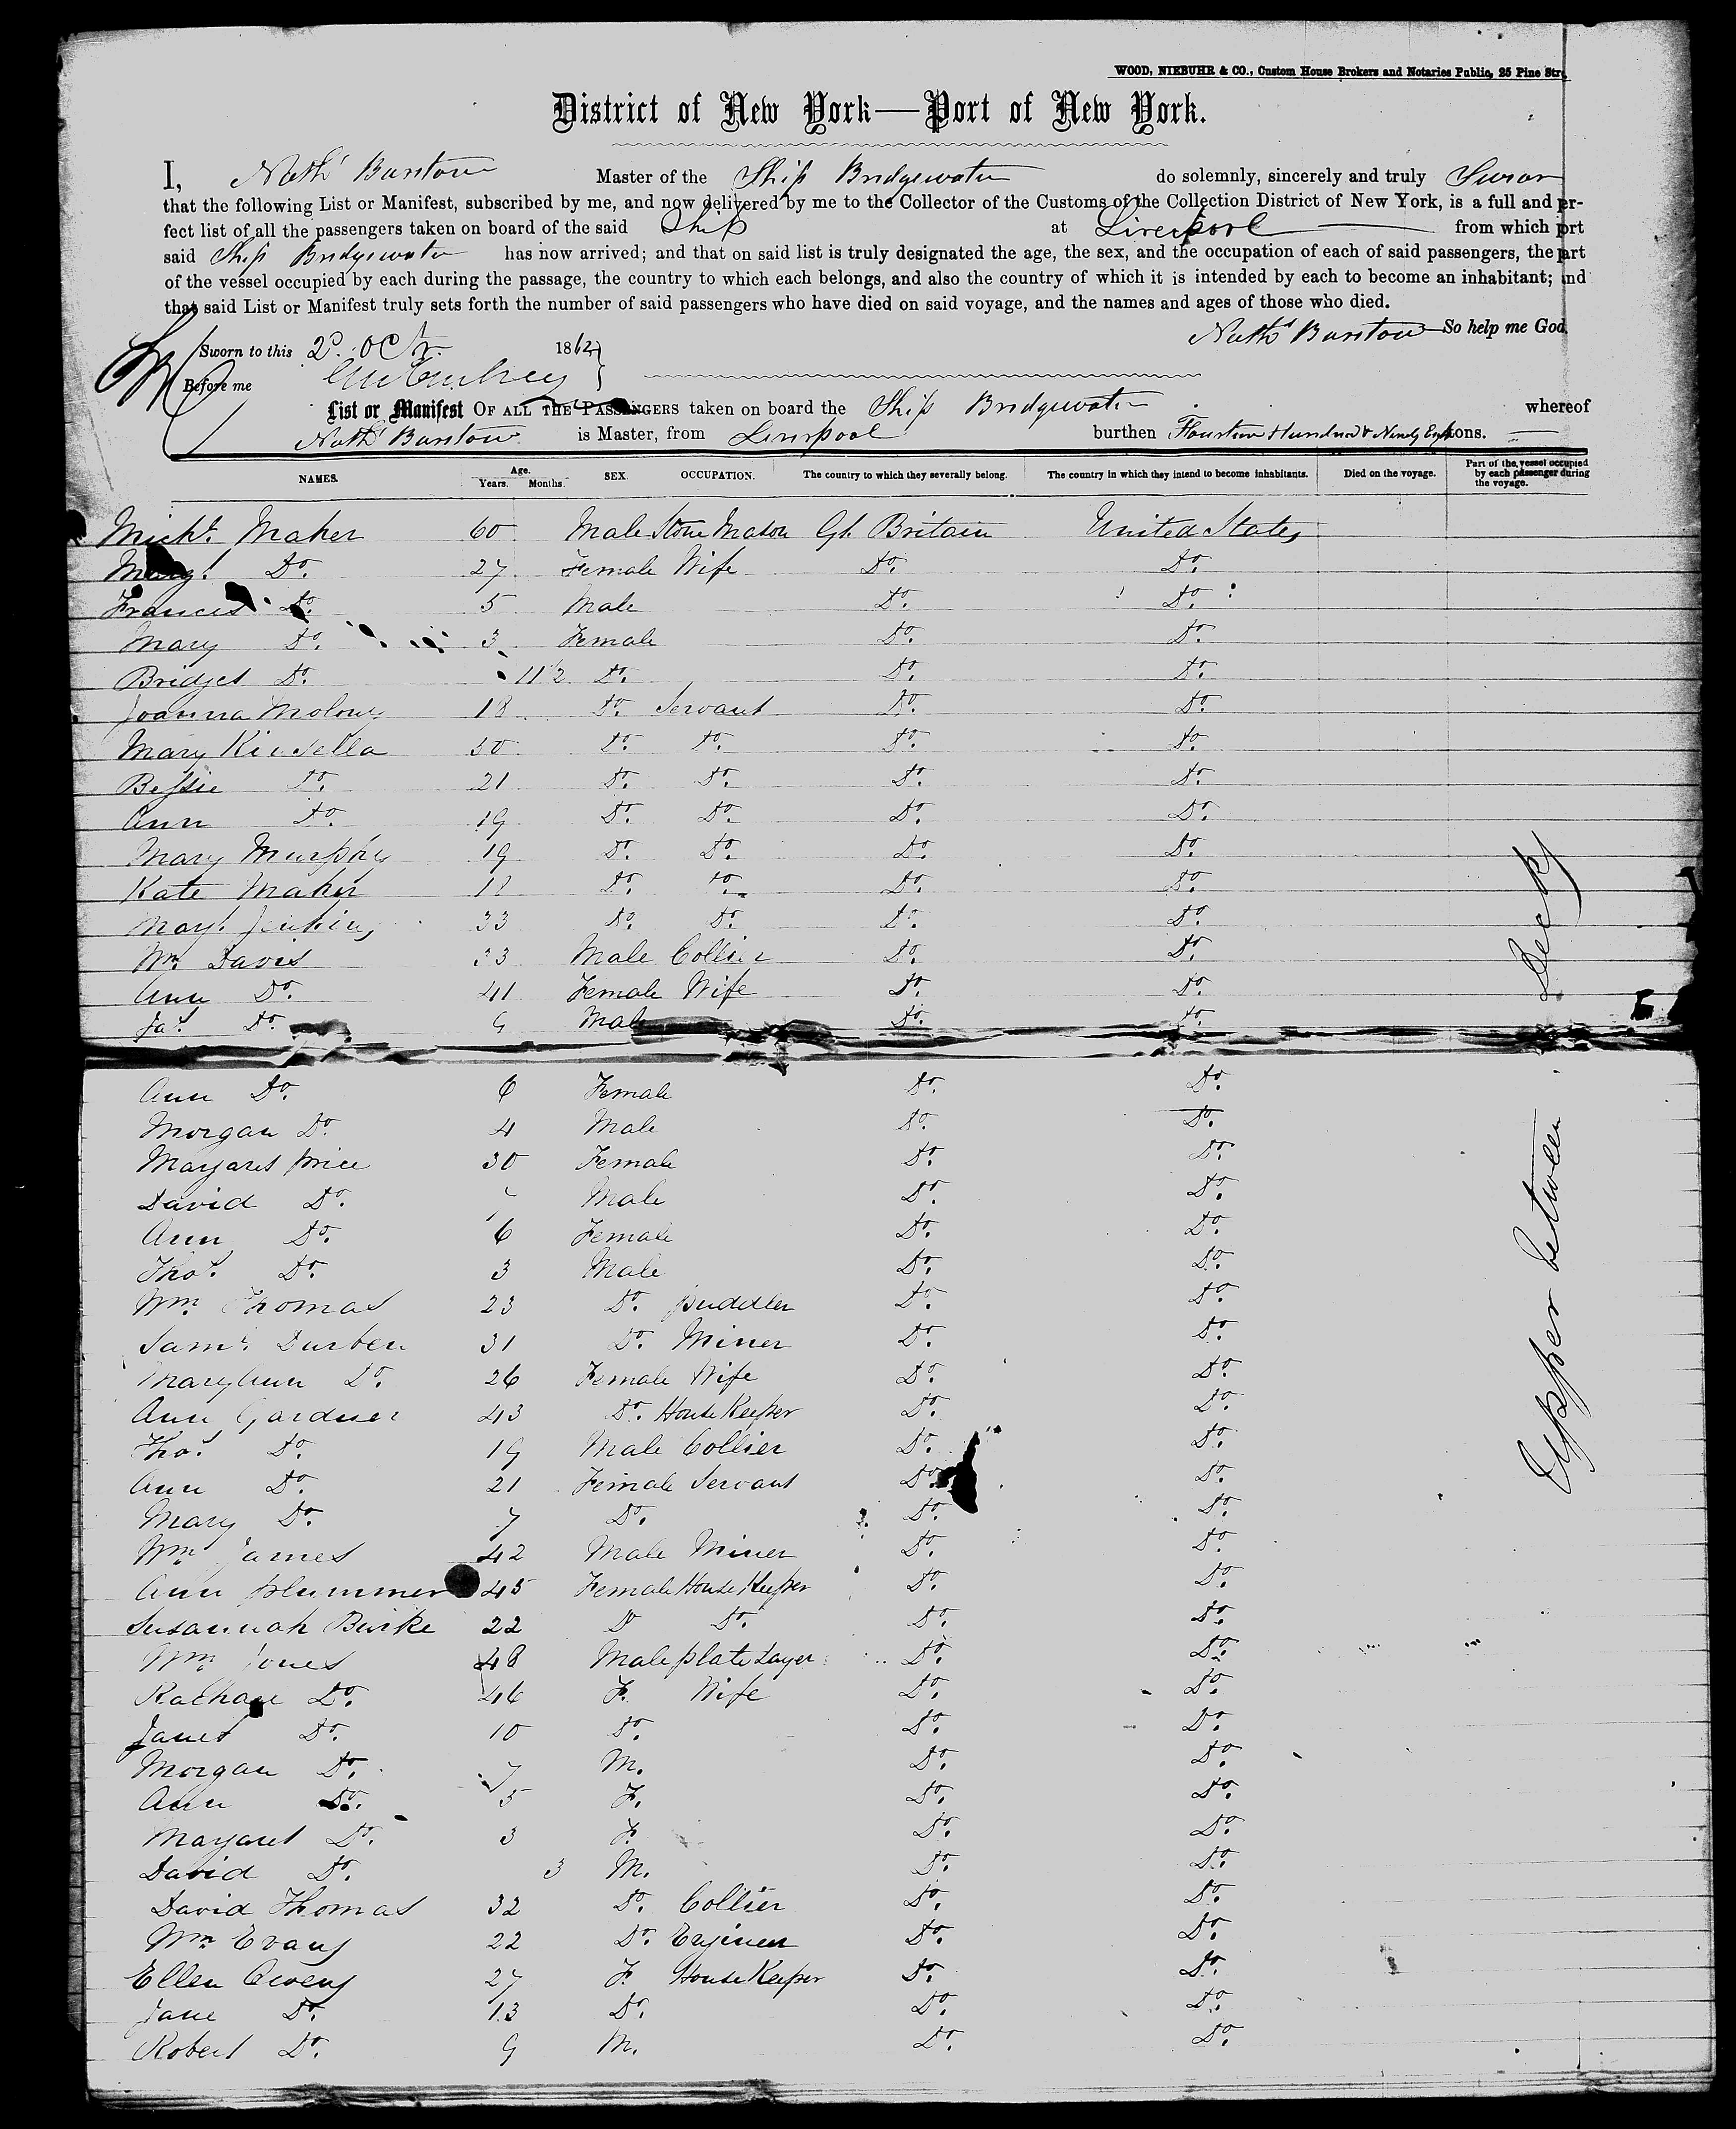 WOOD, NIEBUHR & CO., Custom House Brokers and Notaries Public, 25 Pine Str.
District of New York—Port of New York.
I, Nathl Barstow Master of the Ship Bridgewater do solemnly, sincerely and truly Swear
that the following List or Manifest, subscribed by me, and now delivered by me to the Collector of the Customs of the Collection District of New York, is a full and per-
fect list of all the passengers taken on board of the said Ship at Liverpool from which port
said Ship Bridgewater has now arrived; and that on said list is truly designated the age, the sex, and the occupation of each of said passengers, the part
of the vessel occupied by each during the passage, the country to which each belongs, and also the country of which it is intended by each to become an inhabitant; and
that said List or Manifest truly sets forth the number of said passengers who have died on said voyage, and the names and ages of those who died.
Nathl Barstow So help me God.
Sworn to this 2d. Oct. 1862
Before me
List or Manifest OF ALL THE PASSENGERS taken on board the Ship Bridgewater whereof
Nathl Barstow is Master, from Liverpool burthen Fourteen Hundred & Ninety tons.
NAMES. Age. Years. Months. SEX. OCCUPATION. The country to which they severally belong. The country in which they intend to become inhabitants. Died on the voyage. Part of the vessel occupied by each passenger during the voyage.
Michl. Maher 60 Male Stone Mason Gt. Britain United States
Margt. Do. 27 Female Wife Do. Do.
Frances Do. 5 Male Do. Do.
Mary Do. 3 Female Do. Do.
Bridget Do. 11½ Do. Do. Do.
Joanna Molony 18 Do. Servant Do. Do.
Mary Kinsella 50 Do. Do. Do. Do.
Bessie Do. 21 Do. Do. Do. Do.
Ann Do. 19 Do. Do. Do. Do.
Mary Murphy 19 Do. Do. Do. Do.
Kate Maher 18 Do. Do. Do. Do.
Margt. Jenkins 33 Do. Do. Do. Do.
Wm. Davis 33 Male Collier Do. Do.
Ann Do. 41 Female Wife Do. Do.
Jas. Do. 9 Male Do. Do.
Ann Do. 6 Female Do. Do.
Morgan Do. 4 Male Do. Do.
Margaret Price 30 Female Do. Do.
David Do. Male Do. Do.
Ann Do. 6 Female Do. Do.
Thos. Do. 3 Male Do. Do.
Wm. Thomas 23 Do. Puddler Do. Do.
Saml. Durben 31 Do. Miner Do. Do.
Mary Ann Do. 26 Female Wife Do. Do.
Ann Gardner 43 Do. House Keeper Do. Do.
Thos. Do. 19 Male Collier Do. Do.
Ann Do. 21 Female Servant Do. Do.
Mary Do. 7 Do. Do. Do.
Wm. James 42 Male Miner Do. Do.
Ann Plummer 45 Female House Keeper Do. Do.
Susannah Burke 22 D Do. Do. Do.
Wm. Jones 48 Male Plate Layer Do. Do.
Rachael Do. 46 F. Wife Do. Do.
Janet Do. 10 Do. Do. Do.
Morgan Do. 7 M. Do. Do.
Ann Do. 5 F. Do. Do.
Margaret Do. 3 F. Do. Do.
David Do. 3 M. Do. Do.
David Thomas 32 Do. Collier Do. Do.
Wm. Evans 22 Do. Engineer Do. Do.
Ellen Owens 27 F. House Keeper Do. Do.
Jane Do. 13 Do. Do. Do.
Robert Do. 9 M. Do. Do.
Upper between Decks